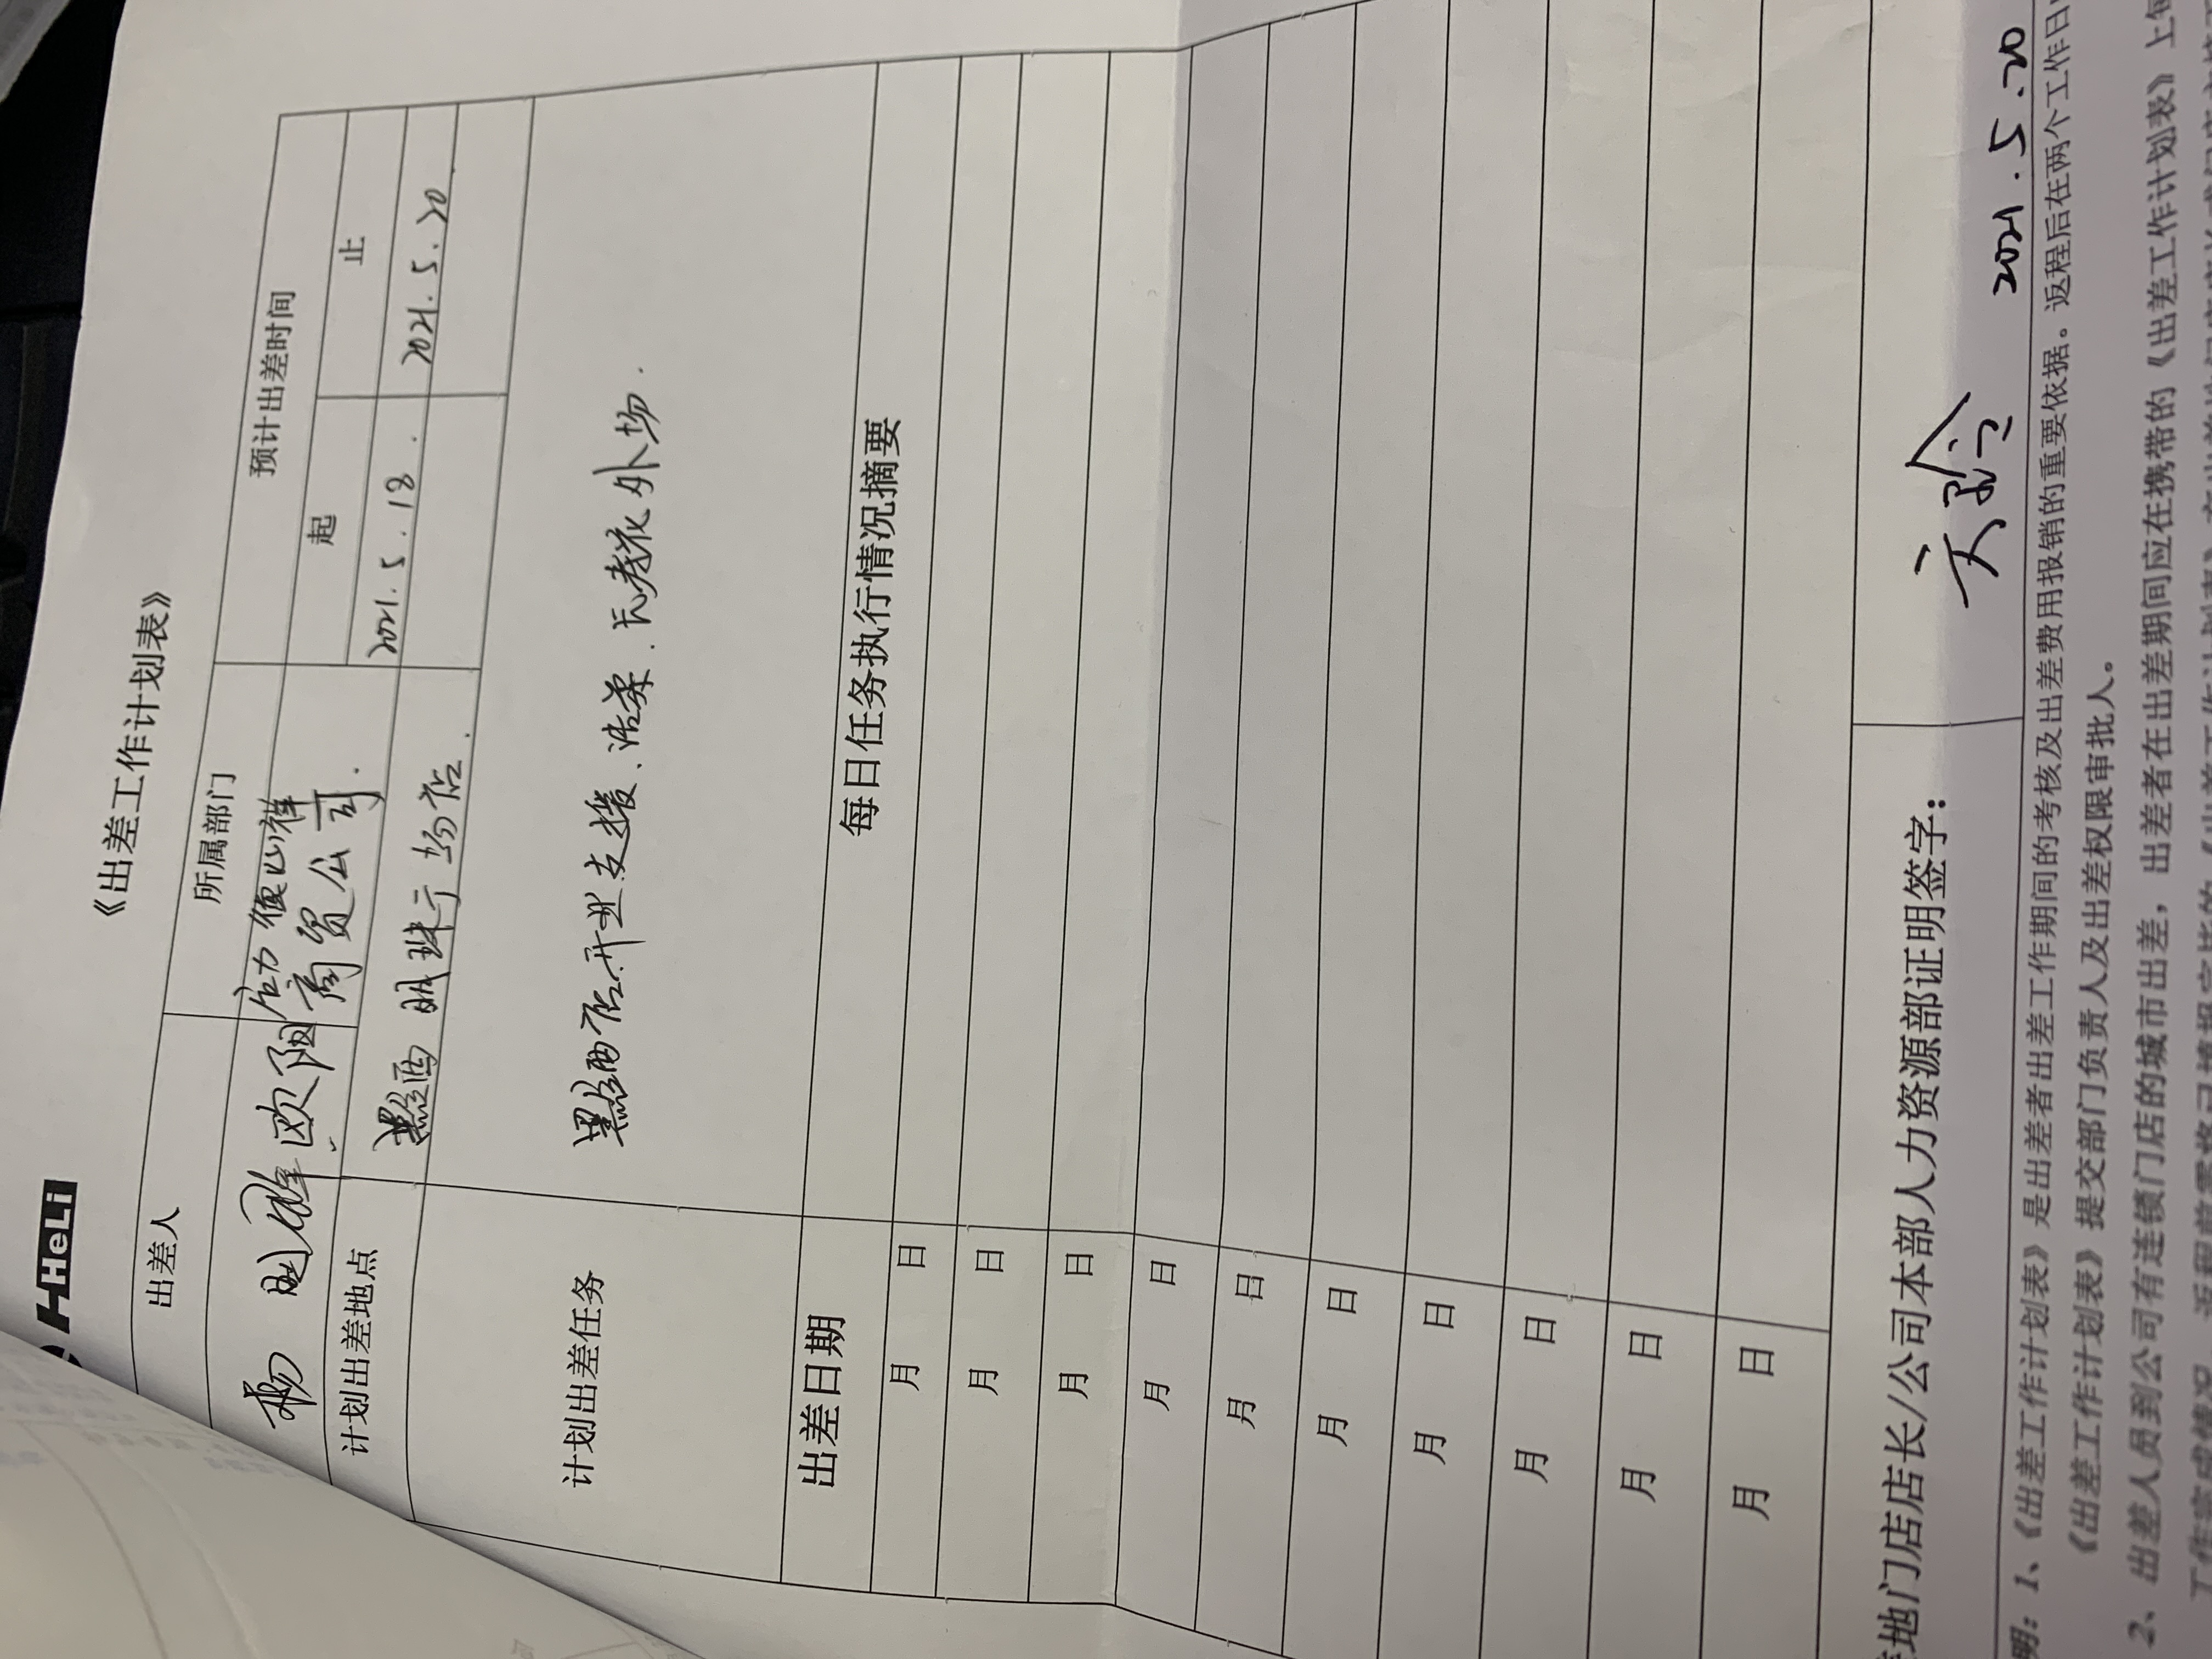 HeLi
《出差工作计划表》
出差人 所属部门 预计出差时间
起 止
杨 欧阳 合力 商贸公司. 2021.5.18. 2021.5.20.
计划出差地点 黔西 明珠广场店.
计划出差任务 黔西店开业支援、浩柔、瓦素依外场.
出差日期 每日任务执行情况摘要
月 日
月 日
月 日
月 日
月 日
月 日
月 日
月 日
月 日
月 日
地门店店长/公司本部人力资源部证明签字: 2021.5.20
明: 1、《出差工作计划表》是出差者出差工作期间的考核及出差费用报销的重要依据。返程后在两个工作日
《出差工作计划表》提交部门负责人及出差权限审批人。
2、出差人员到公司有连锁门店的城市出差，出差者在出差期间应在携带的《出差工作计划表》上